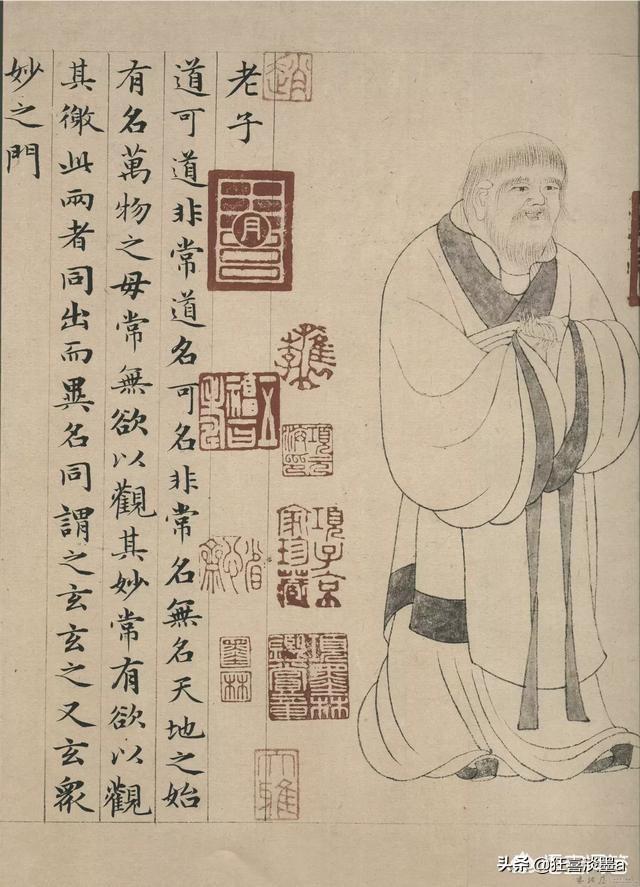 老子
道可道非常道名可名非常名無名天地之始
有名萬物之母常無欲以觀其妙常有欲以觀
其徼此兩者同出而異名同謂之玄玄之又玄衆
妙之門
項子京家珍藏
墨林
头条 @狂喜淡墨a